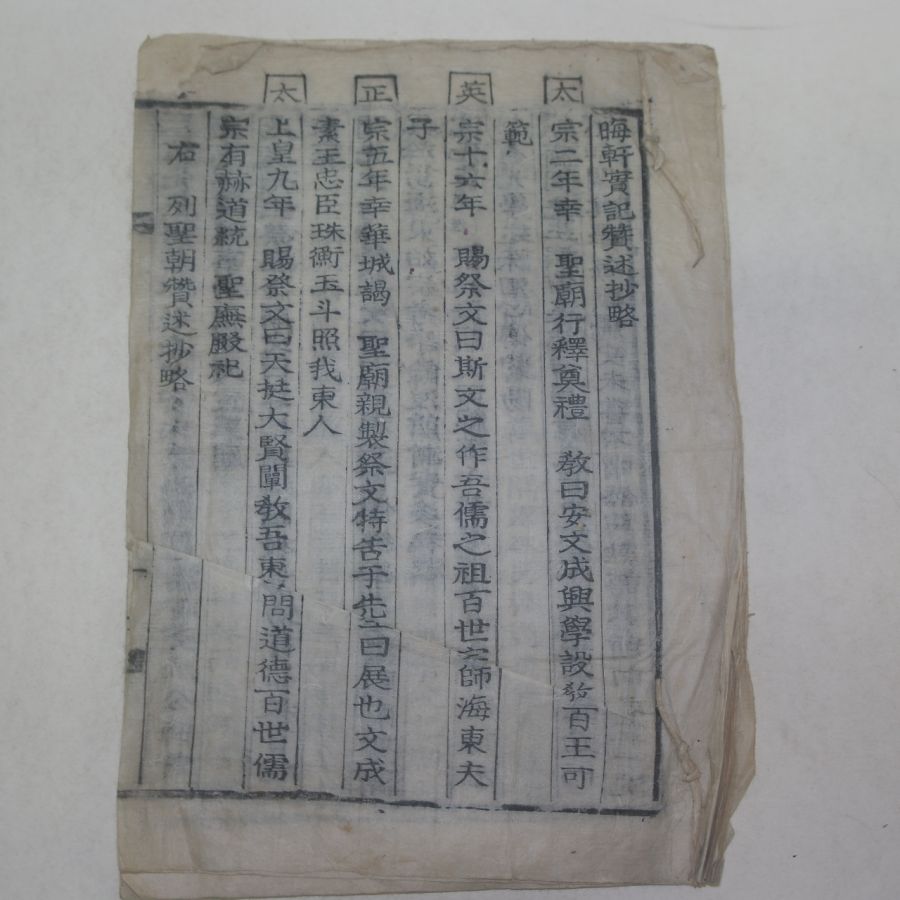 晦軒實記贊述抄略
太宗二年幸 聖廟行釋奠禮 敎曰安文成興學設敎百王可
範
英宗十六年 賜祭文曰斯文之作吾儒之祖百世之師海東夫
子
正宗五年幸華城謁 聖廟親製祭文特告于先正曰展也文成
素王忠臣珠衡玉斗照我東人
太上皇九年 賜祭文曰天挺大賢闡敎吾東問道德百世儒
宗有赫道統 聖廡腏祀
右 列聖朝贊述抄略